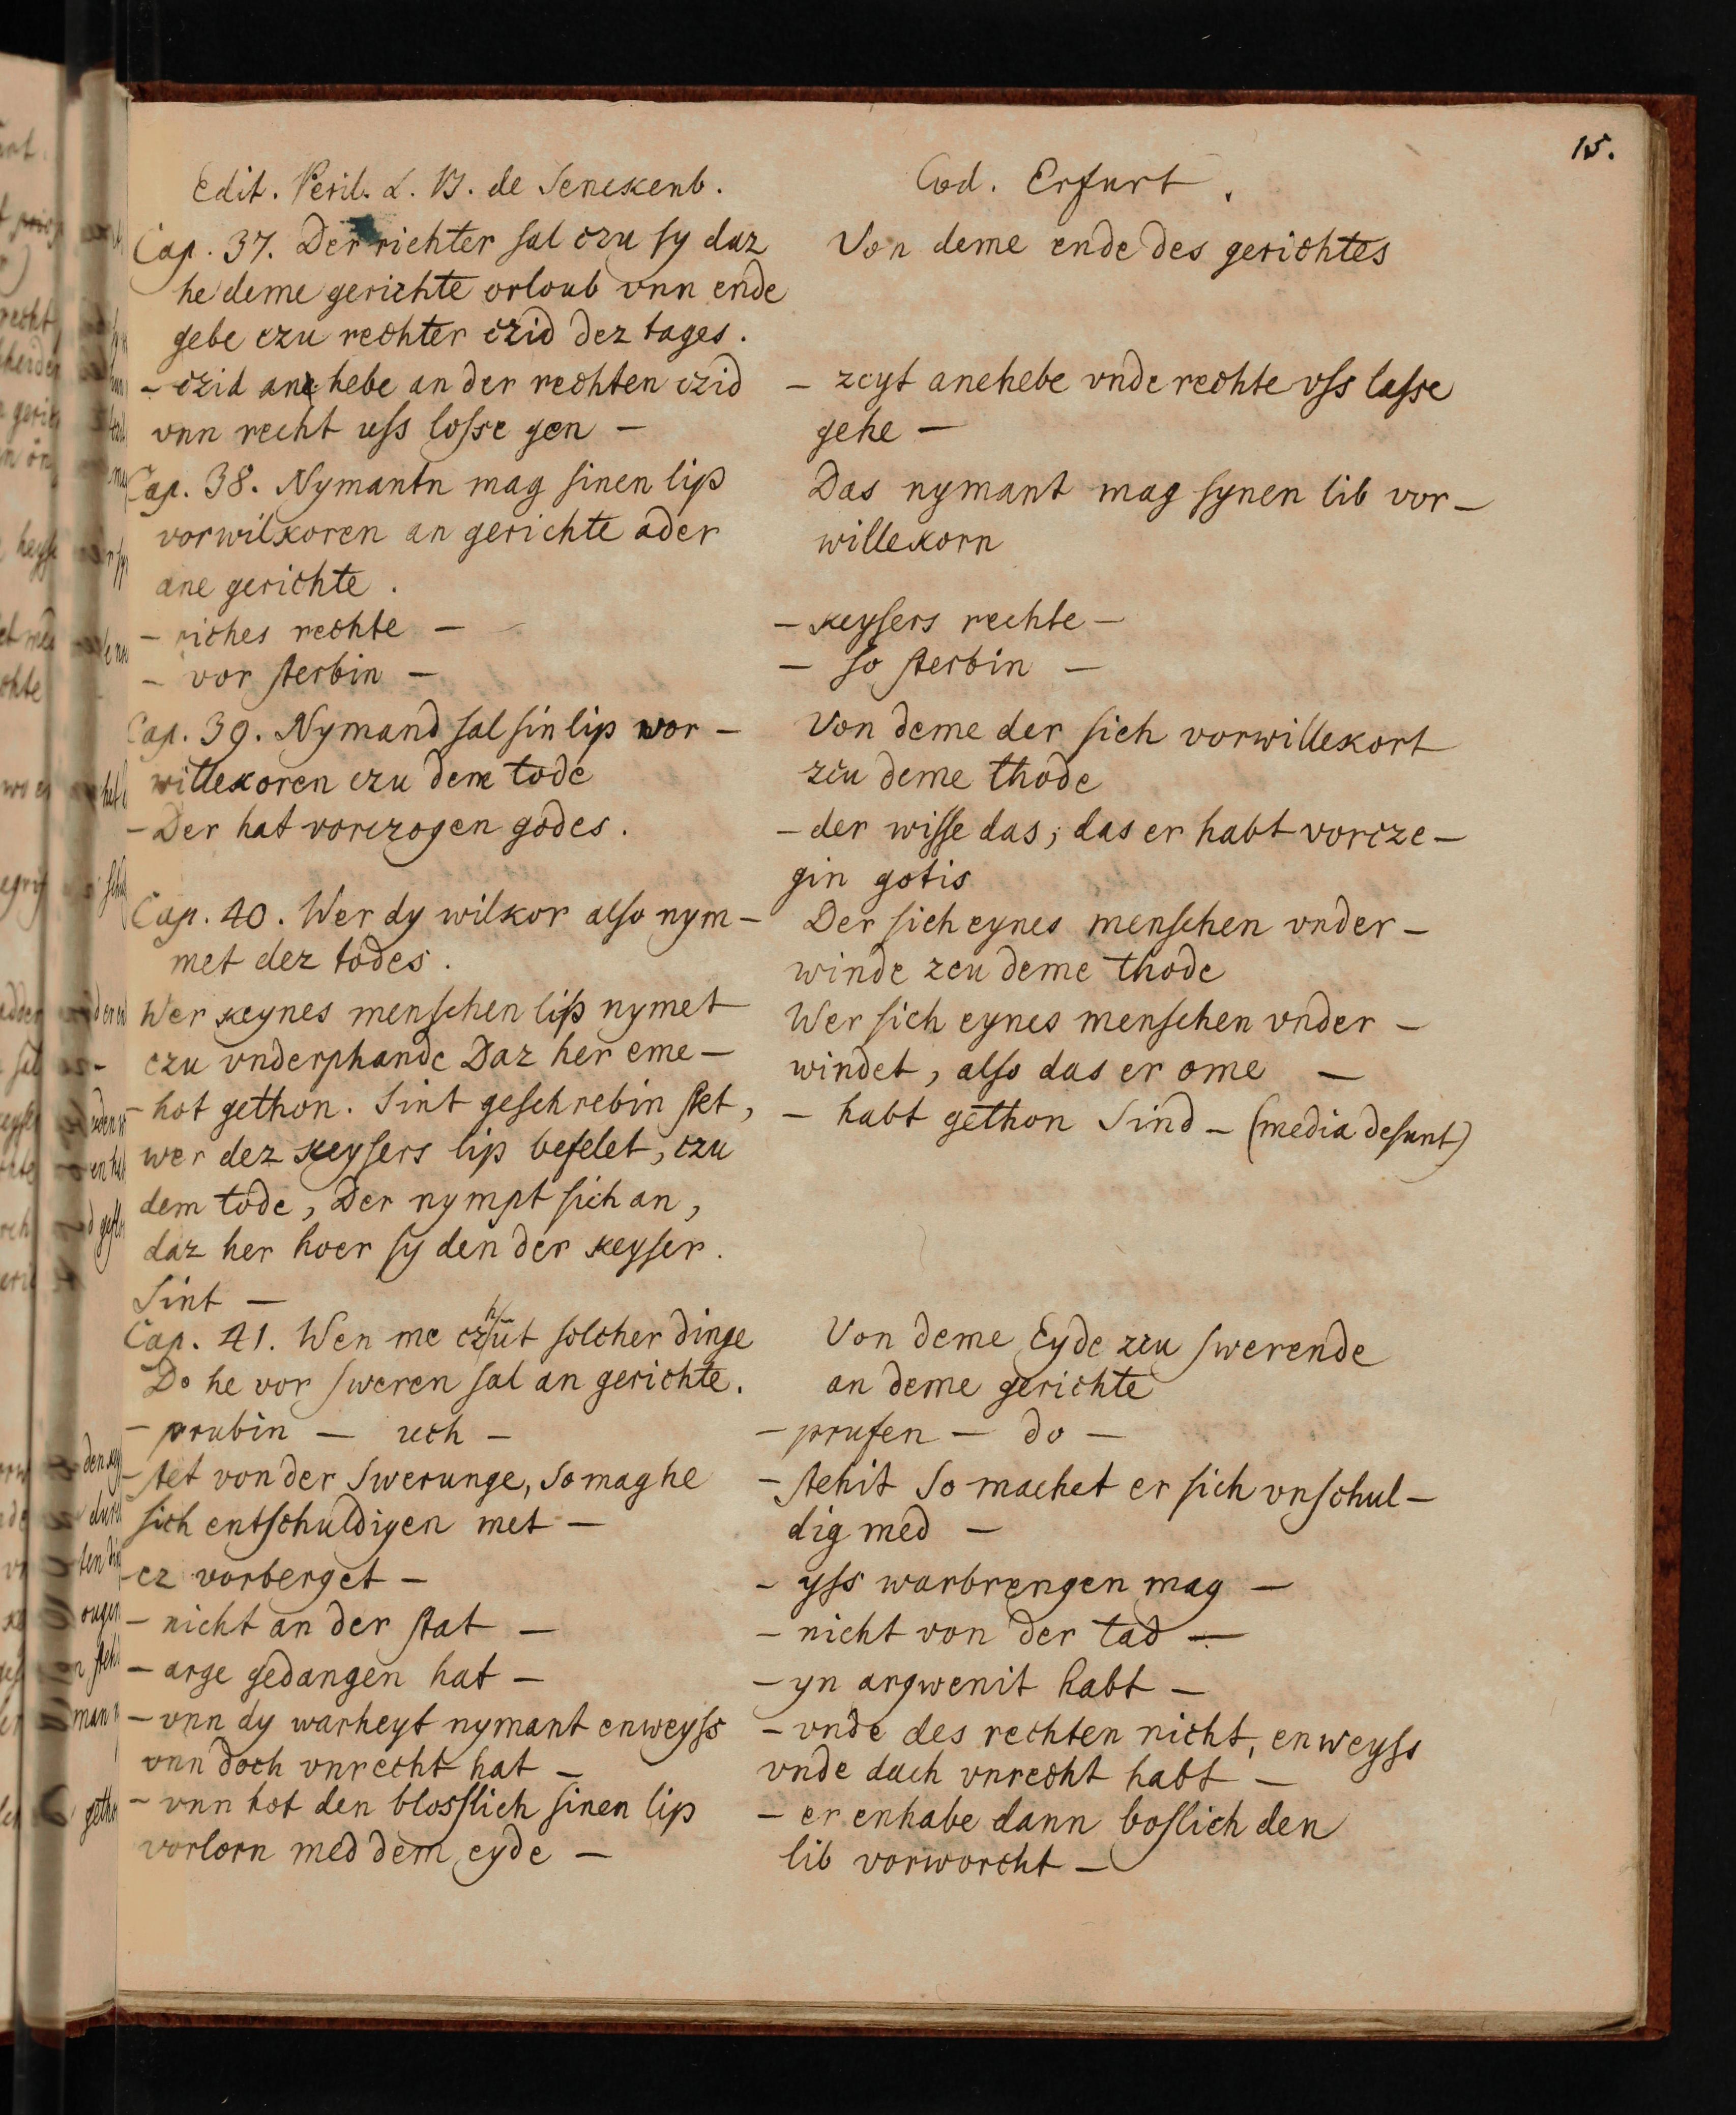 15.
Edit. Peril. L. B. de Senckenb.
Cap. 37. Der richter sal czu sy daz
he deme gerichte orloub vnn ende
gebe czu rechter czid dez tages.
– czid ane hebe an der rechten czid
vnn recht uss losse gen –
Cap. 38. Nymantn mag sinen lip
vorwilkoren an gerichte ader
ane gerichte.
– riches rechte –
– vor sterbin –
Cap. 39. Nymand sal sin lip vor –
willekoren czu dem tode
– Der hat vorczogen godes.
Cap. 40. Wer dy wilkor also nym –
met dez todes.
Wer keynes menschen lip nymet
czu vnderphande Daz her eme –
– hot gethon. Sint geschrebin stet,
wer dez keysers lip befelet, czu
dem tode, Der nympt sich an,
daz her hoer sy den der keyser.
Sint –
Cap. 41. Wen me czhut solcher dinge
Do he vor sweren sal an gerichte.
– prubin – uch –
– stet von der Swerunge, so mag he
sich entschuldigen met –
– ez vorberget –
– nicht an der stat –
– arge gedangen hat –
– vnn dy warheyt nymant enweyss
vnn doch vnrecht hat –
– vnn hot den blosslich sinen lip
vorlorn med dem eyde –
Cod. Erfurt.
Von deme ende des gerichtes
– zcyt anehebe vnde rechte vss lasse
gehe –
Das nymant mag synen lib vor –
willekorn
– keysers rechte –
– so sterbin –
Von deme der sich vorwillekort
zcu deme thode
– der wisse das, das er habt vorcze –
gin gotis
Der sich eynes menschen vnder –
winde zcu deme thode
Wer sich eynes menschen vnder –
windet, also das er ome –
– habt gethon Sind – (media desunt)
Von deme Eyde zcu swerende
an deme gerichte
– prufen – do –
– stehit So machet er sich vnschul –
dig med –
– yss warbrengen mag –
– nicht von der tad –
– yn argwenit habt –
– vnde des rechten nicht, enweyss
vnde duch vnrecht habt –
– er enhabe dann boslich den
lib vorworcht –